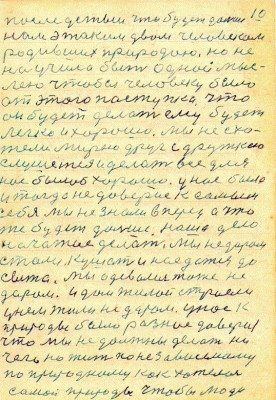 10
последствии что будет дальше
нам этаким двом человекам
родивших природою, но не
научила быть одной мыс-
лею чтобы человеку было
от этого поступка, что
он будет делать ему будет
легко и хорошо. Мы не схо-
тели мирно друг с дружкою
слушется и делать все для
нас было б хорошо. У нас было
и тогда не доверие к самим
себя мы не знали вперед а что
же будет дальше, наше дело
начатое делать. Мы не даром
стали, кушать и наедатся до
сыта. Мы одевался тоже не
даром. И дом жилой строели
у нем жили не даром. У нас к
природы было разное доверие
что мы не должны делать ни
чего, но жить по независимому
по природному как хотелось
самой природы чтобы люди